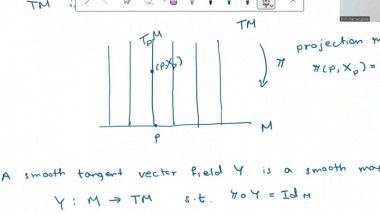 TM
TM
TpM
(p, Xp)
π
projection m
π(p, Xp) =
p
M
A smooth tangent vector field Y is a smooth ma
Y : M → TM s.t. π∘Y = Id_M